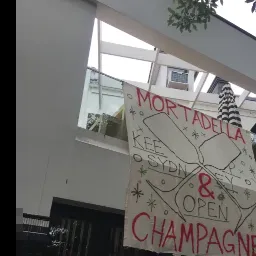 MORTADELLA
KEEP
SYDNEY
&
OPEN
CHAMPAGNE